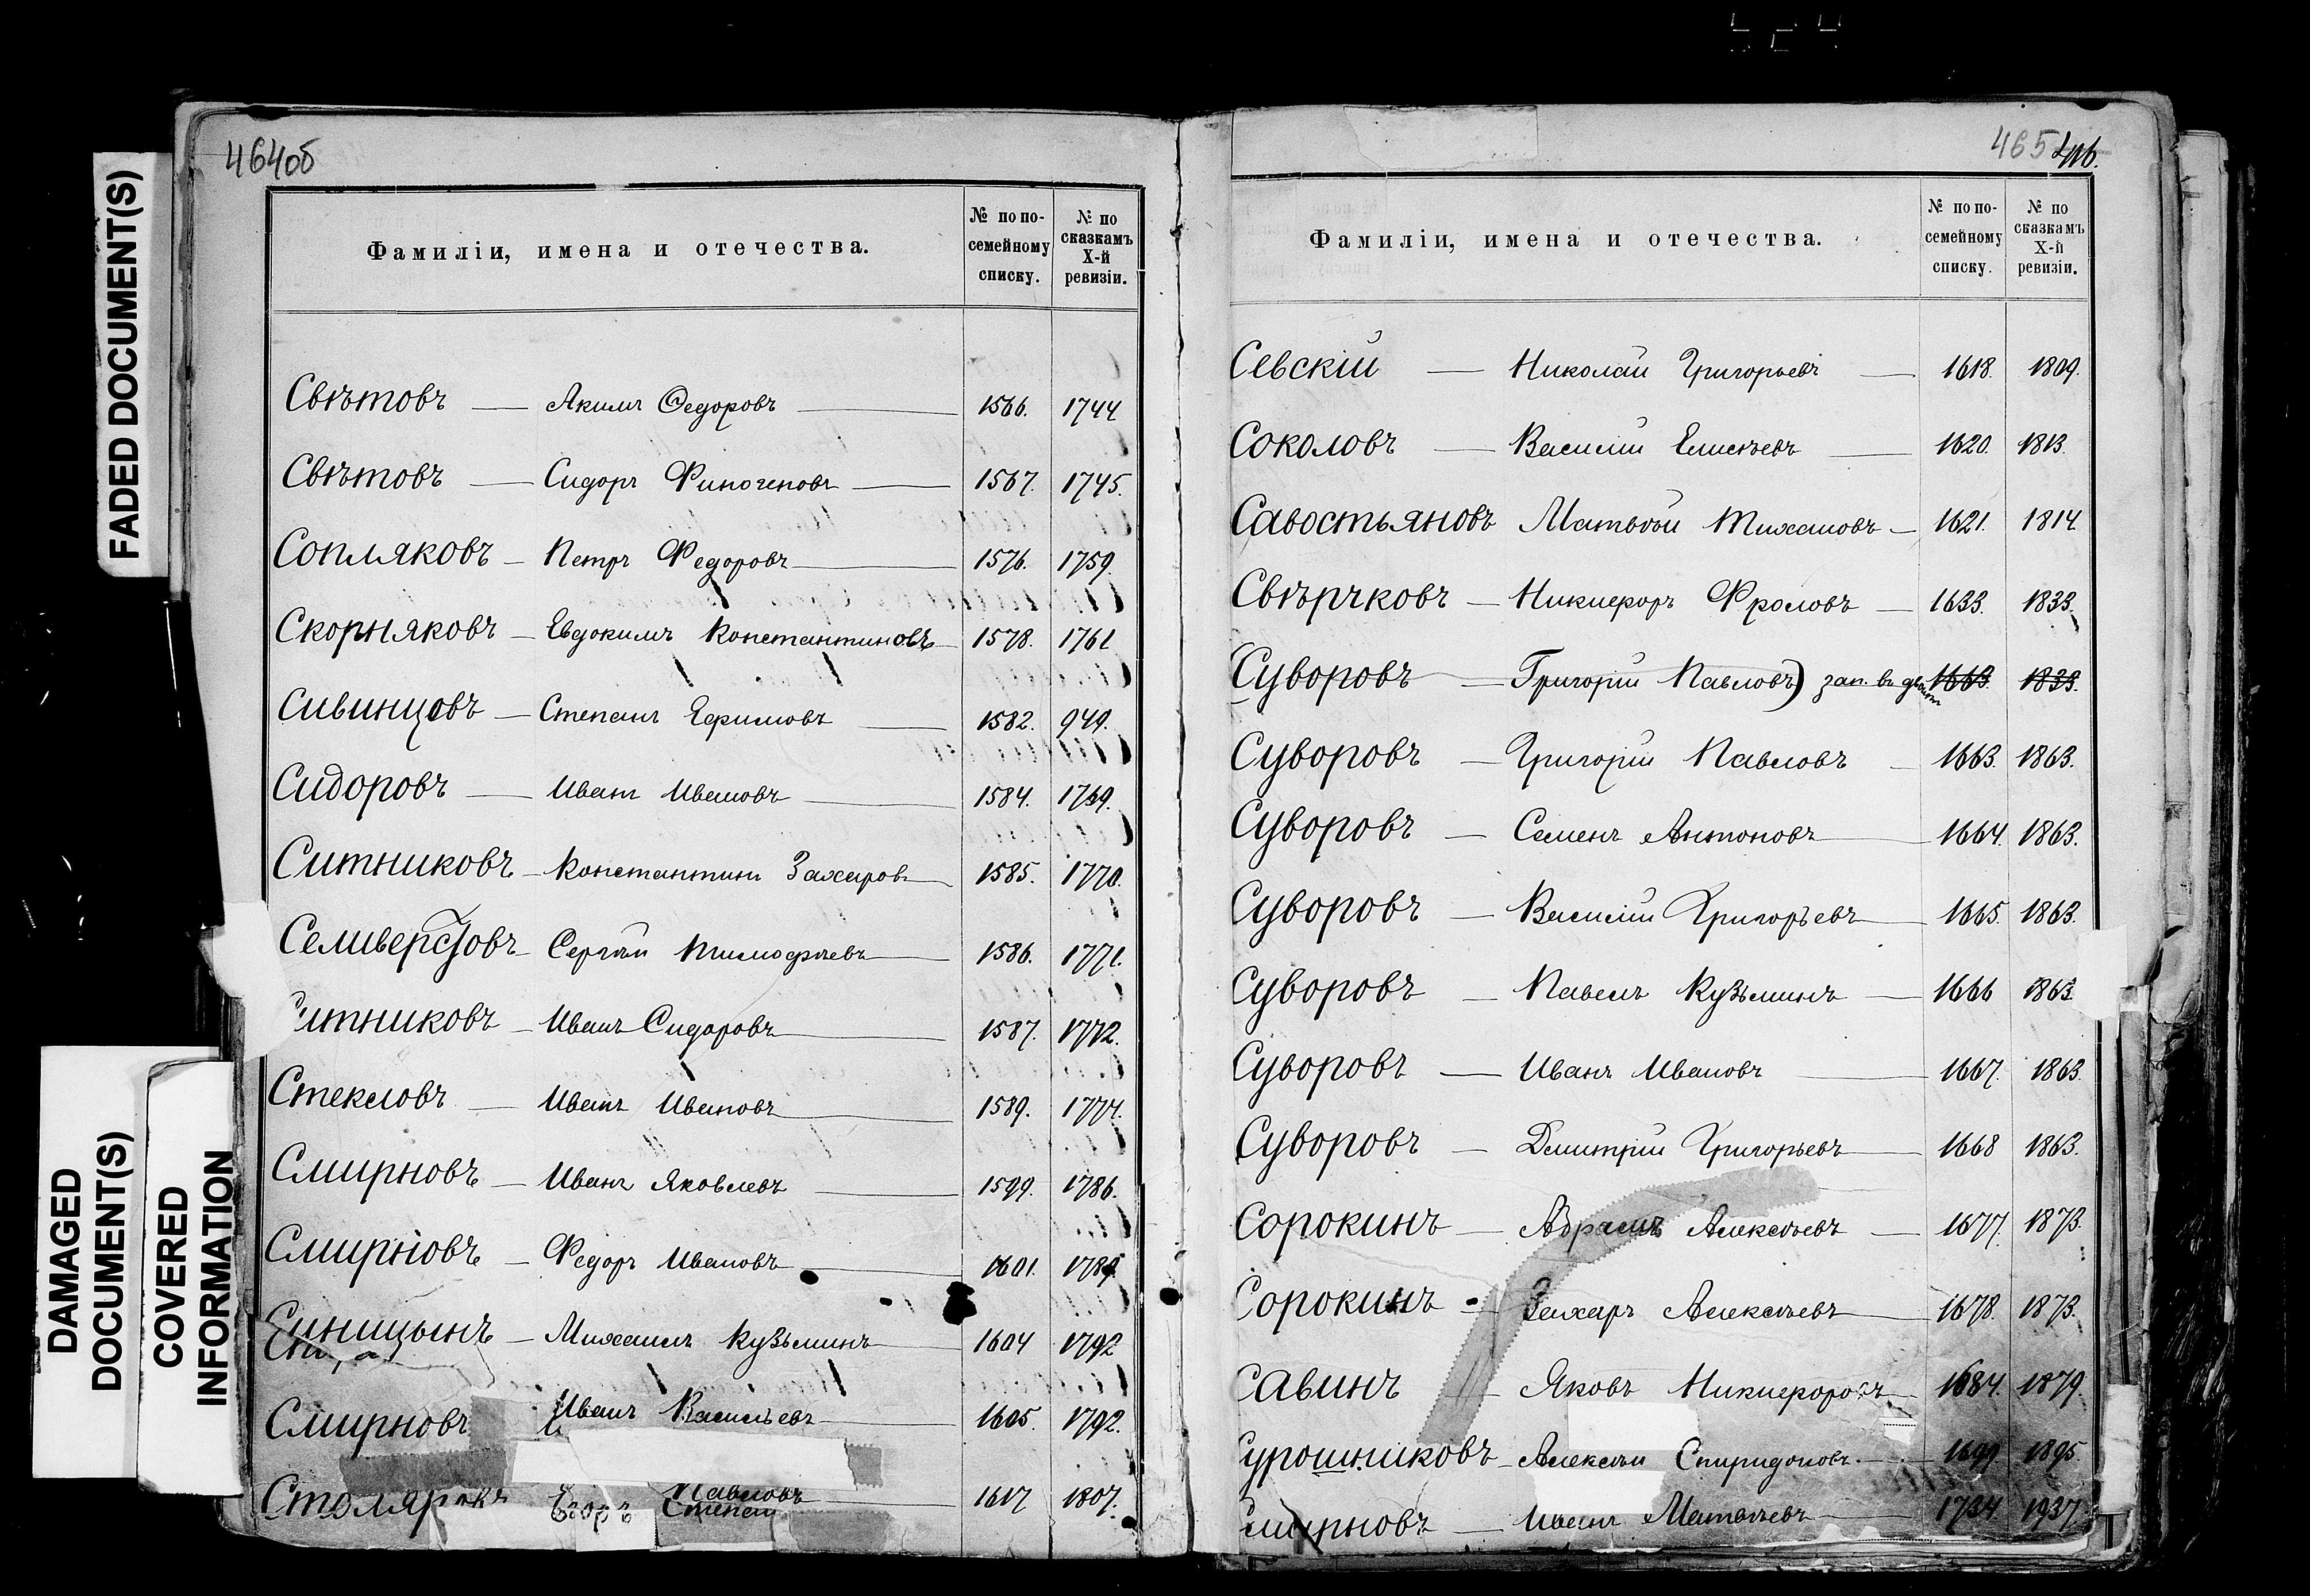 464об
Фамиліи, имена и отечества.
№ по по-
семейному
списку.
№ по
сказкамъ
X-й
ревизіи.
Свѣтовъ — Акимъ Ѳедоровъ — 1566. 1744
Свѣтовъ — Сидоръ Финогеновъ — 1567. 1745.
Сопляковъ — Петръ Федоровъ — 1576. 1759.
Скорняковъ — Евдокимъ Константиновъ — 1578. 1761
Сивинцовъ — Степанъ Ефимовъ — 1582. 949.
Сидоровъ — Иванъ Ивановъ — 1584. 1769.
Ситниковъ — Константинъ Захаровъ — 1585. 1770.
Селиверстовъ — Сергѣй Тимофѣевъ — 1586. 1771.
итниковъ — Иванъ Сидоровъ — 1587. 1772.
Стекловъ — Иванъ Ивановъ — 1589. 1774.
Смирновъ — Иванъ Яковлевъ — 1599. 1786.
Смирновъ — Федоръ Ивановъ — 1601. 1789.
Синицынъ — Михаилъ Кузьминъ — 1604 1792
Смирновъ Иванъ Васильевъ — 1605. 1792.
Столяр Егоръ Павловъ — 1617 1807.
Степан
465
Фамиліи, имена и отечества.
№ по по-
семейному
списку.
№ по
сказкамъ
X-й
ревизіи.
Севскій — Николай Григорьевъ — 1618. 1809.
Соколовъ — Василій Елисѣевъ — 1620. 1813.
Савостьяновъ Матвѣй Тихановъ — 1621. 1814
Свѣрчковъ — Никифоръ Фроловъ — 1633. 1833.
Суворовъ — Григорій Павловъ) зап. въ 1663. 1833.
Суворовъ — Григорій Павловъ — 1663. 1863.
Суворовъ — Семенъ Антоновъ — 1664. 1863.
Суворовъ — Василій Григорьевъ — 1665. 1863.
Суворовъ — Павелъ Кузьминъ — 1666 1863.
Суворовъ — Иванъ Ивановъ — 1667. 1863.
Суворовъ — Дмитрій Григорьевъ — 1668 1863.
Сорокинъ — Абрамъ Алексѣевъ — 1677. 1873.
Сорокинъ — Захаръ Алексѣевъ — 1678. 1873.
Савинъ — Яковъ Никифоровъ — 1684. 1879.
Сурошниковъ — Алексѣй Спиридоновъ — 1699 1895.
Смирновъ — Иванъ Матвѣевъ — 1734 1937.
FADED DOCUMENT(S)
DAMAGED
DOCUMENT(S)
COVERED
INFORMATION